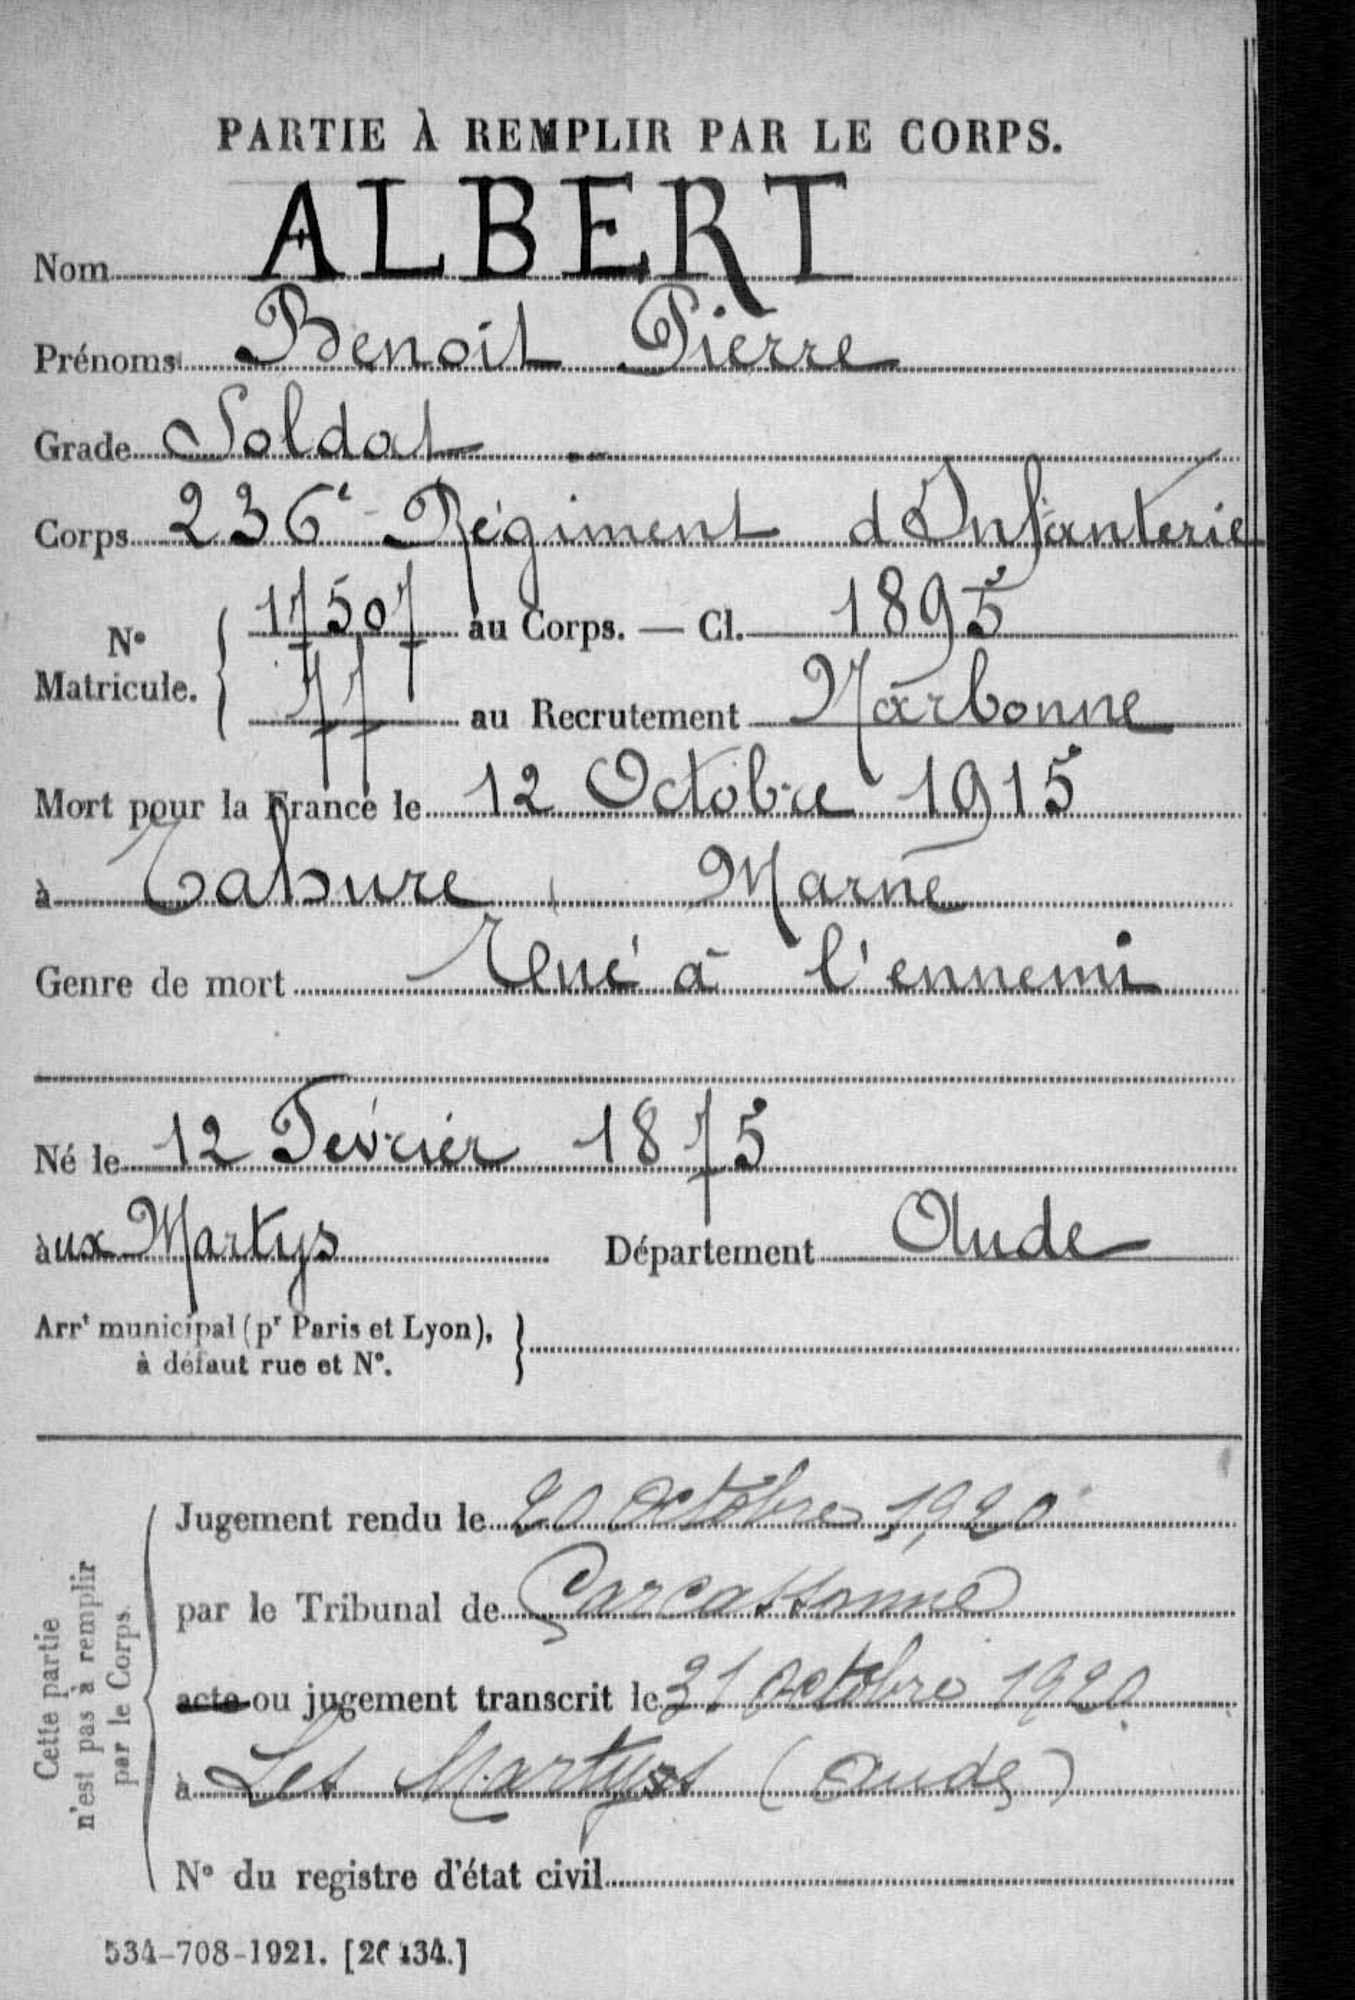 PARTIE À REMPLIR PAR LE CORPS.
Nom ALBERT
Prénoms Benoit Pierre
Grade Soldat
Corps 236e Régiment d'Infanterie
N° Matricule. 17507 au Corps. — Cl. 1895
77 au Recrutement Narbonne
Mort pour la France le 12 Octobre 1915
à Tahure Marne
Genre de mort Tué à l'ennemi
Né le 12 Février 1875
aux Martys Département Aude
Arrt municipal (pr Paris et Lyon),
à défaut rue et N°.
Cette partie
n'est pas à remplir
par le Corps.
Jugement rendu le 20 Octobre 1920
par le Tribunal de Carcassonne
acte ou jugement transcrit le 31 Octobre 1920
à Les Martys (Aude)
N° du registre d'état civil
534-708-1921.